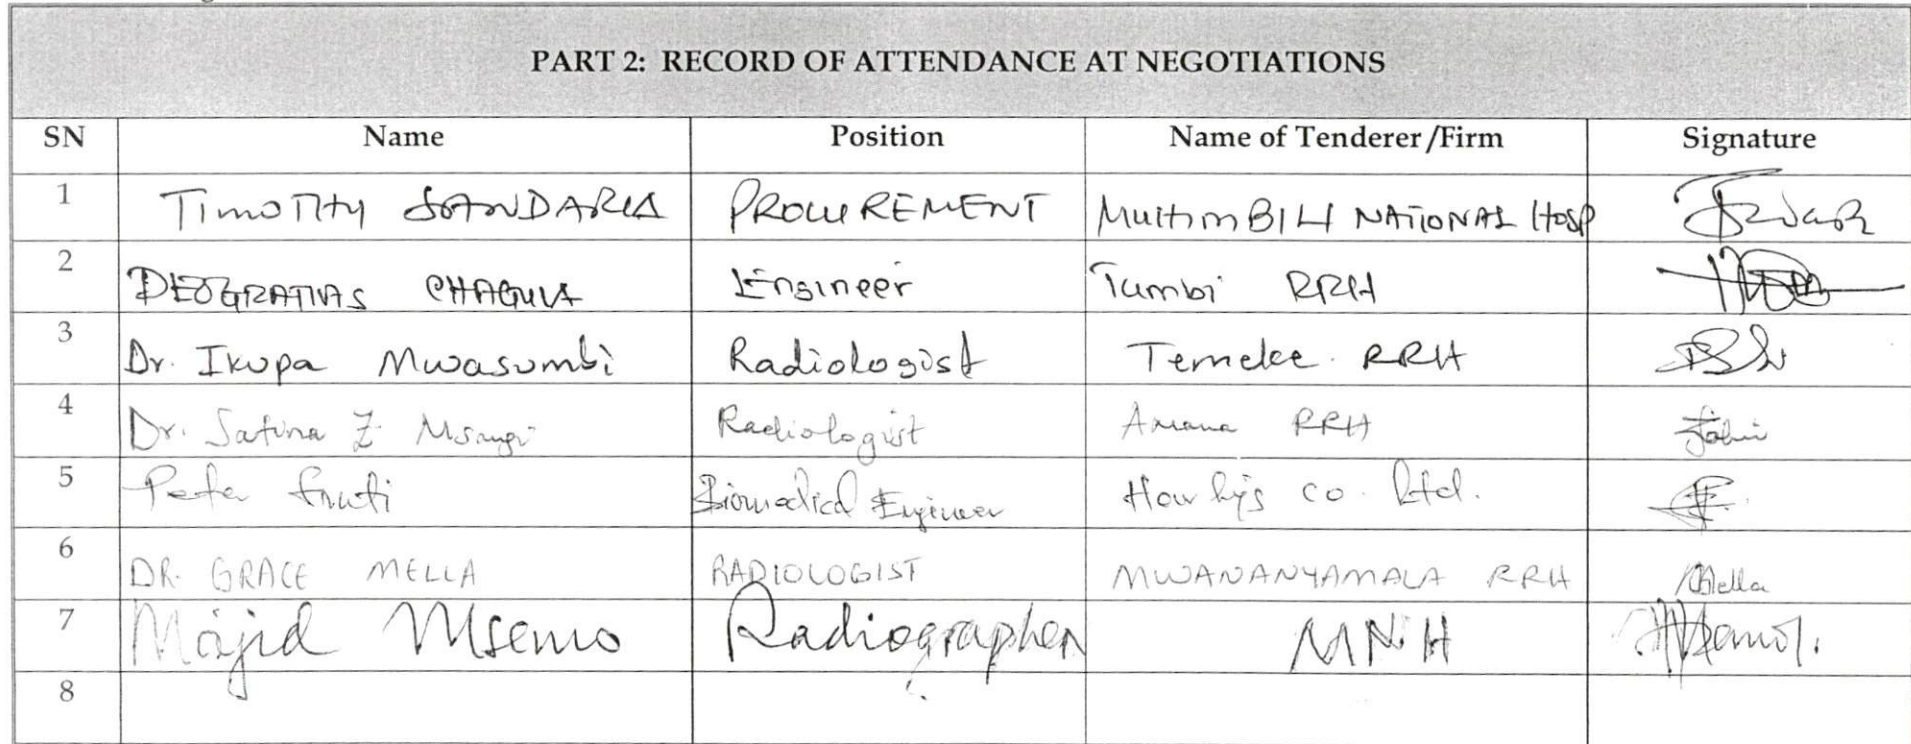 PART 2: RECORD OF ATTENDANCE AT NEGOTIATIONS
SN Name Position Name of Tenderer/Firm Signature
1 TIMOTHY PROCUREMENT MUHIMBILI NATIONAL HOSP
2 DEOGRATIAS CHAGULA Engineer Tumbi RRH
3 Dr. Ikupa Mwasumbi Radiologist Temeke RRH
4 Dr. Safina Z Msangi Radiologist Amana RRH
5 Biomedical Engineer co. Ltd.
6 DR. GRACE MELLA RADIOLOGIST MWANANYAMALA RRH Mella
7 Majid Msemo Radiographer MNH
8